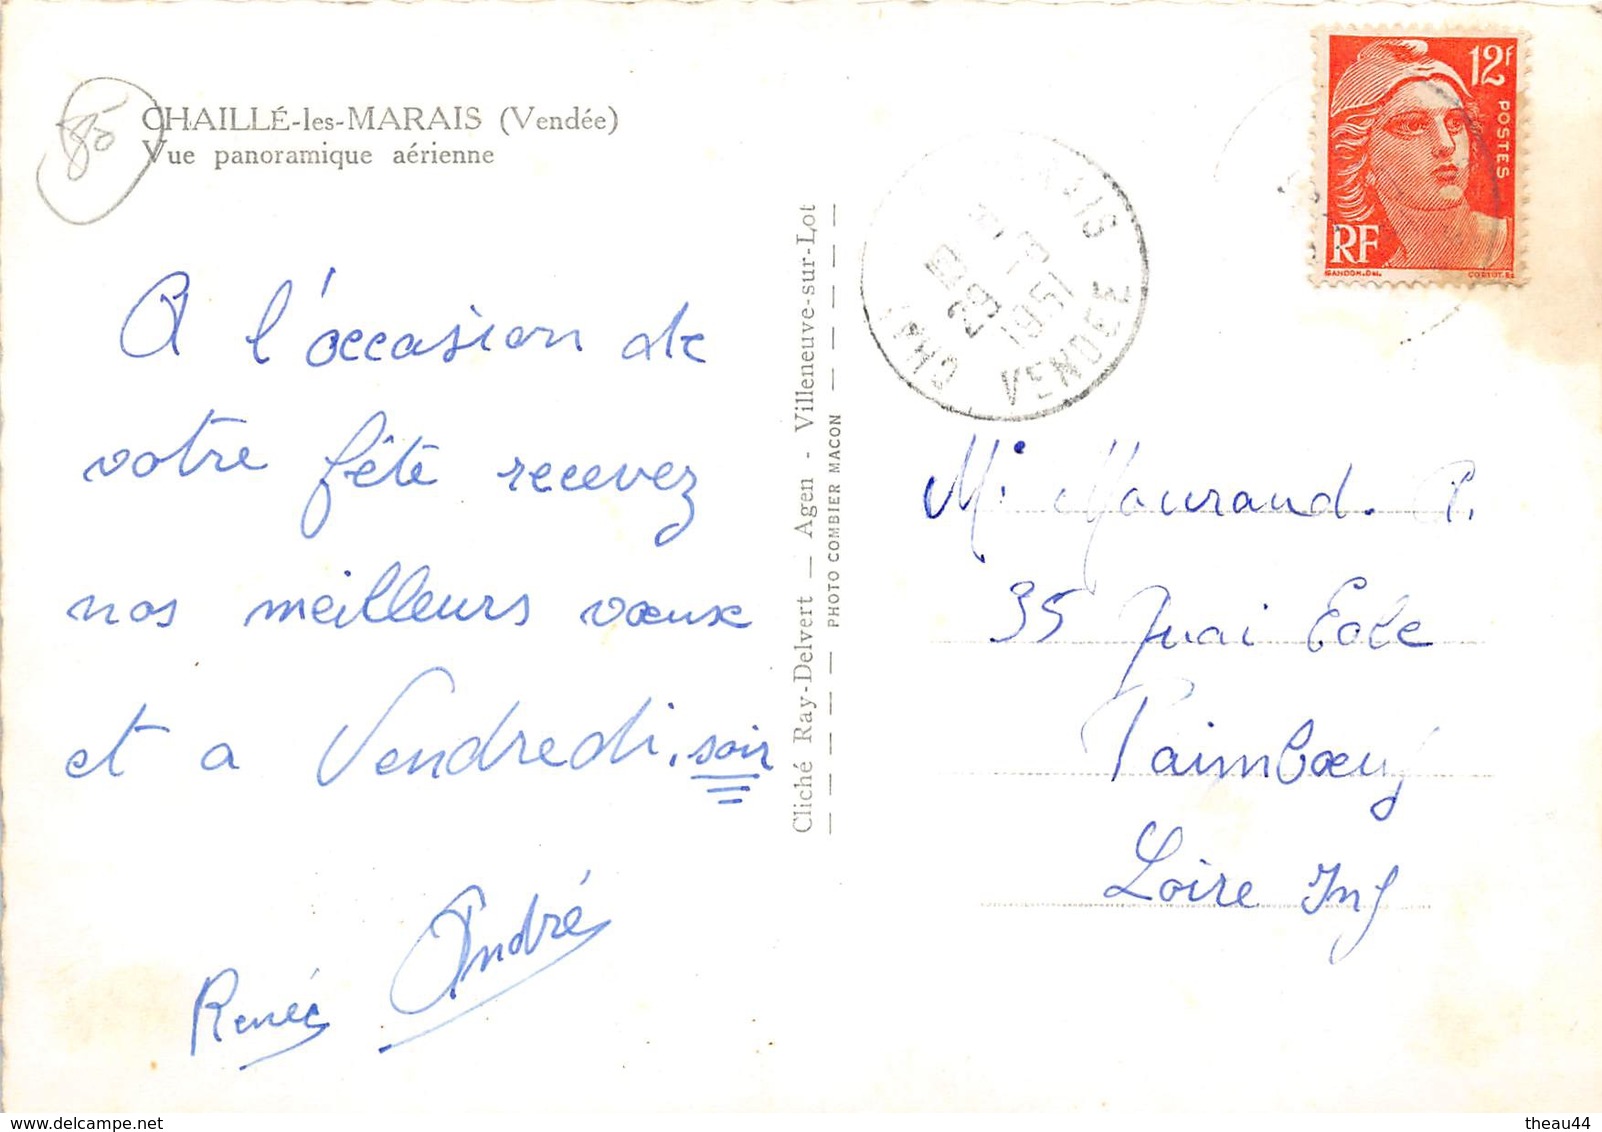 85
CHAILLÉ-les-MARAIS (Vendée)
Vue panoramique aérienne
A l'occasion de
votre fête recevez
nos meilleurs vœux
et a Vendredi, soir
Renée André
Cliché Ray-Delvert — Agen - Villeneuve-sur-Lot
PHOTO COMBIER MACON
1951
VENDEE
12F
POSTES
RF
GANDON.DEL.
M. Mourand. P.
35 Quai Eole
Paimbœuf
Loire Inf
delcampe.net
theau44